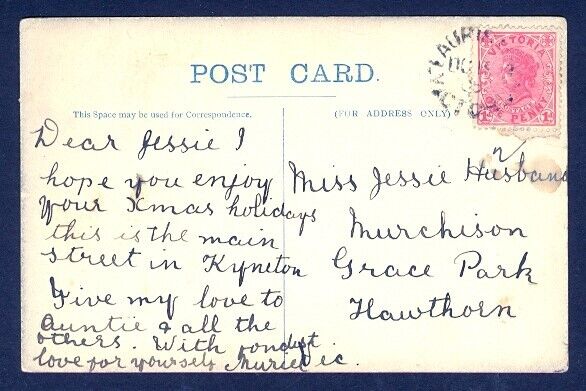 POST CARD.
This Space may be used for Correspondence.
(FOR ADDRESS ONLY)
VICTORIA
ONE PENNY
Dear Jessie I
hope you enjoy
your Xmas holidays
this is the main
street in Kyneton
Give my love to
Auntie & all the
others. With fondest
love for yourself Muriel
Miss Jessie Husband
Murchison
Grace Park
Hawthorn